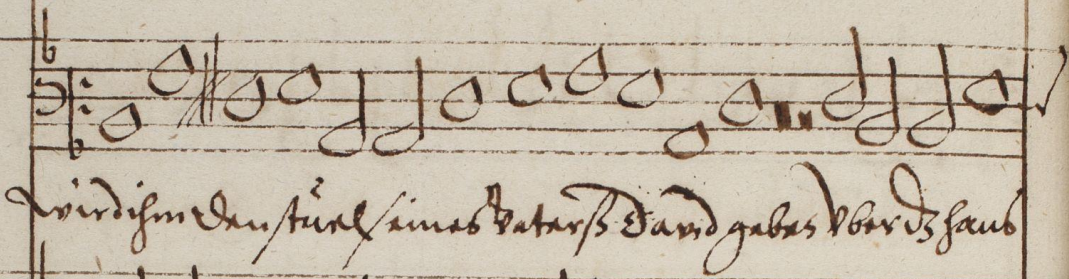 wird ihm den stuel seines Vaterß David geben vber dz haus